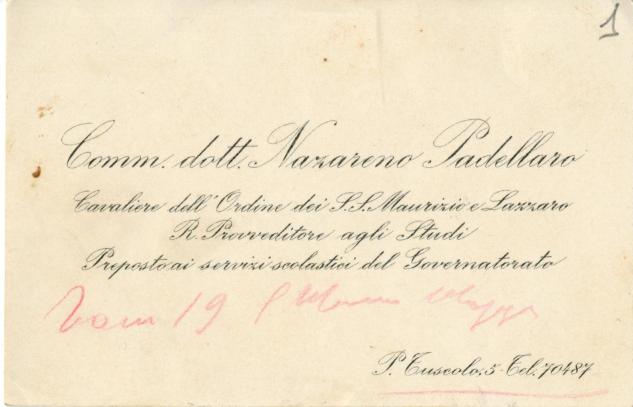 1
Comm. dott. Nazareno Padellaro
Cavaliere dell'Ordine dei S.S. Maurizio e Lazzaro
R. Provveditore agli Studi
Preposto ai servizi scolastici del Governatorato
19
P. Tuscolo, 5 - Tel. 70487